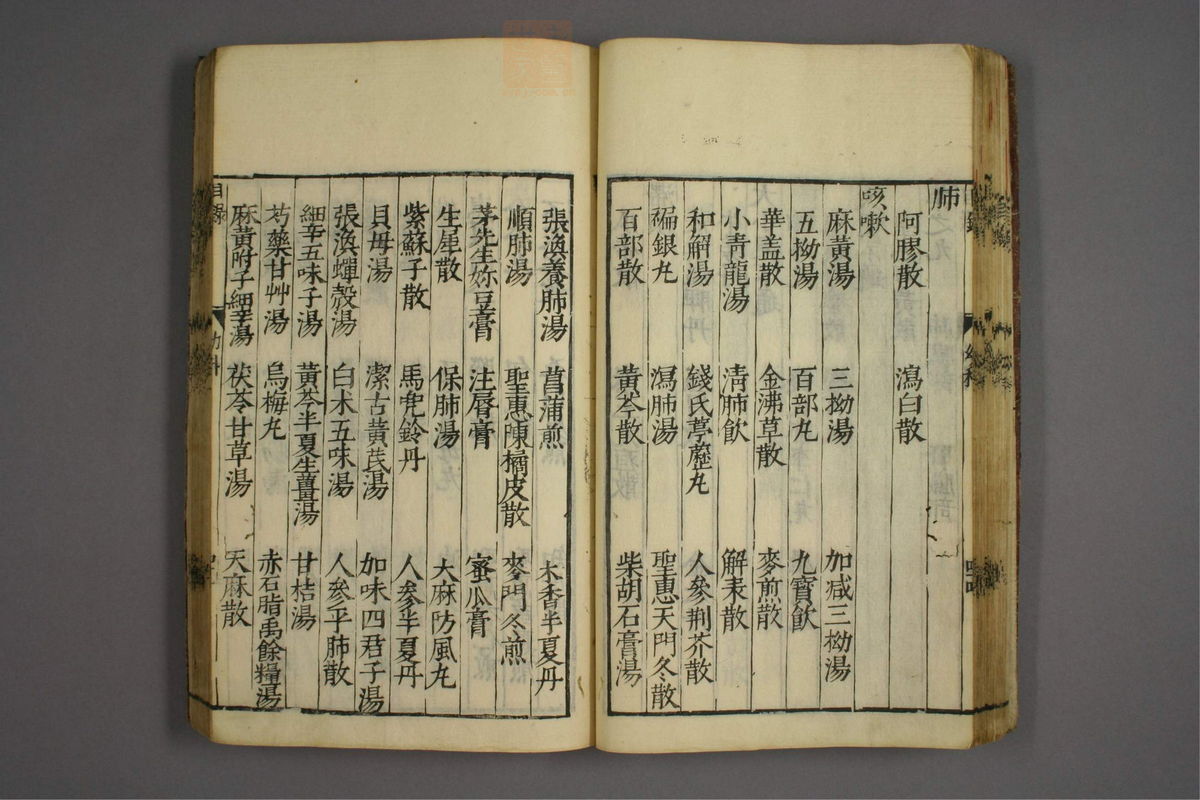 肺
阿膠散 瀉白散
咳嗽
麻黃湯 三拗湯 加減三拗湯
五拗湯 百部丸 九寶飲
華盖散 金沸草散 麥煎散
小青龍湯 清肺飲 解表散
和解湯 錢氏葶藶丸 人參荆芥散
褊銀丸 瀉肺湯 聖惠天門冬散
百部散 黃芩散 柴胡石膏湯
張渙養肺湯 菖蒲煎 木香半夏丹
順肺湯 聖惠陳橘皮散 麥門冬煎
茅先生奶豆膏 注脣膏 蜜瓜膏
生犀散 保肺湯 大麻防風丸
紫蘇子散 馬兜鈴丹 人參半夏丹
貝母湯 潔古黃芪湯 加味四君子湯
張渙蟬殼湯 白朮五味湯 人參平肺散
細辛五味子湯 黃芩半夏生薑湯 甘桔湯
芍藥甘艸湯 烏梅丸 赤石脂禹餘糧湯
麻黃附子細辛湯 茯苓甘草湯 天麻散
目錄